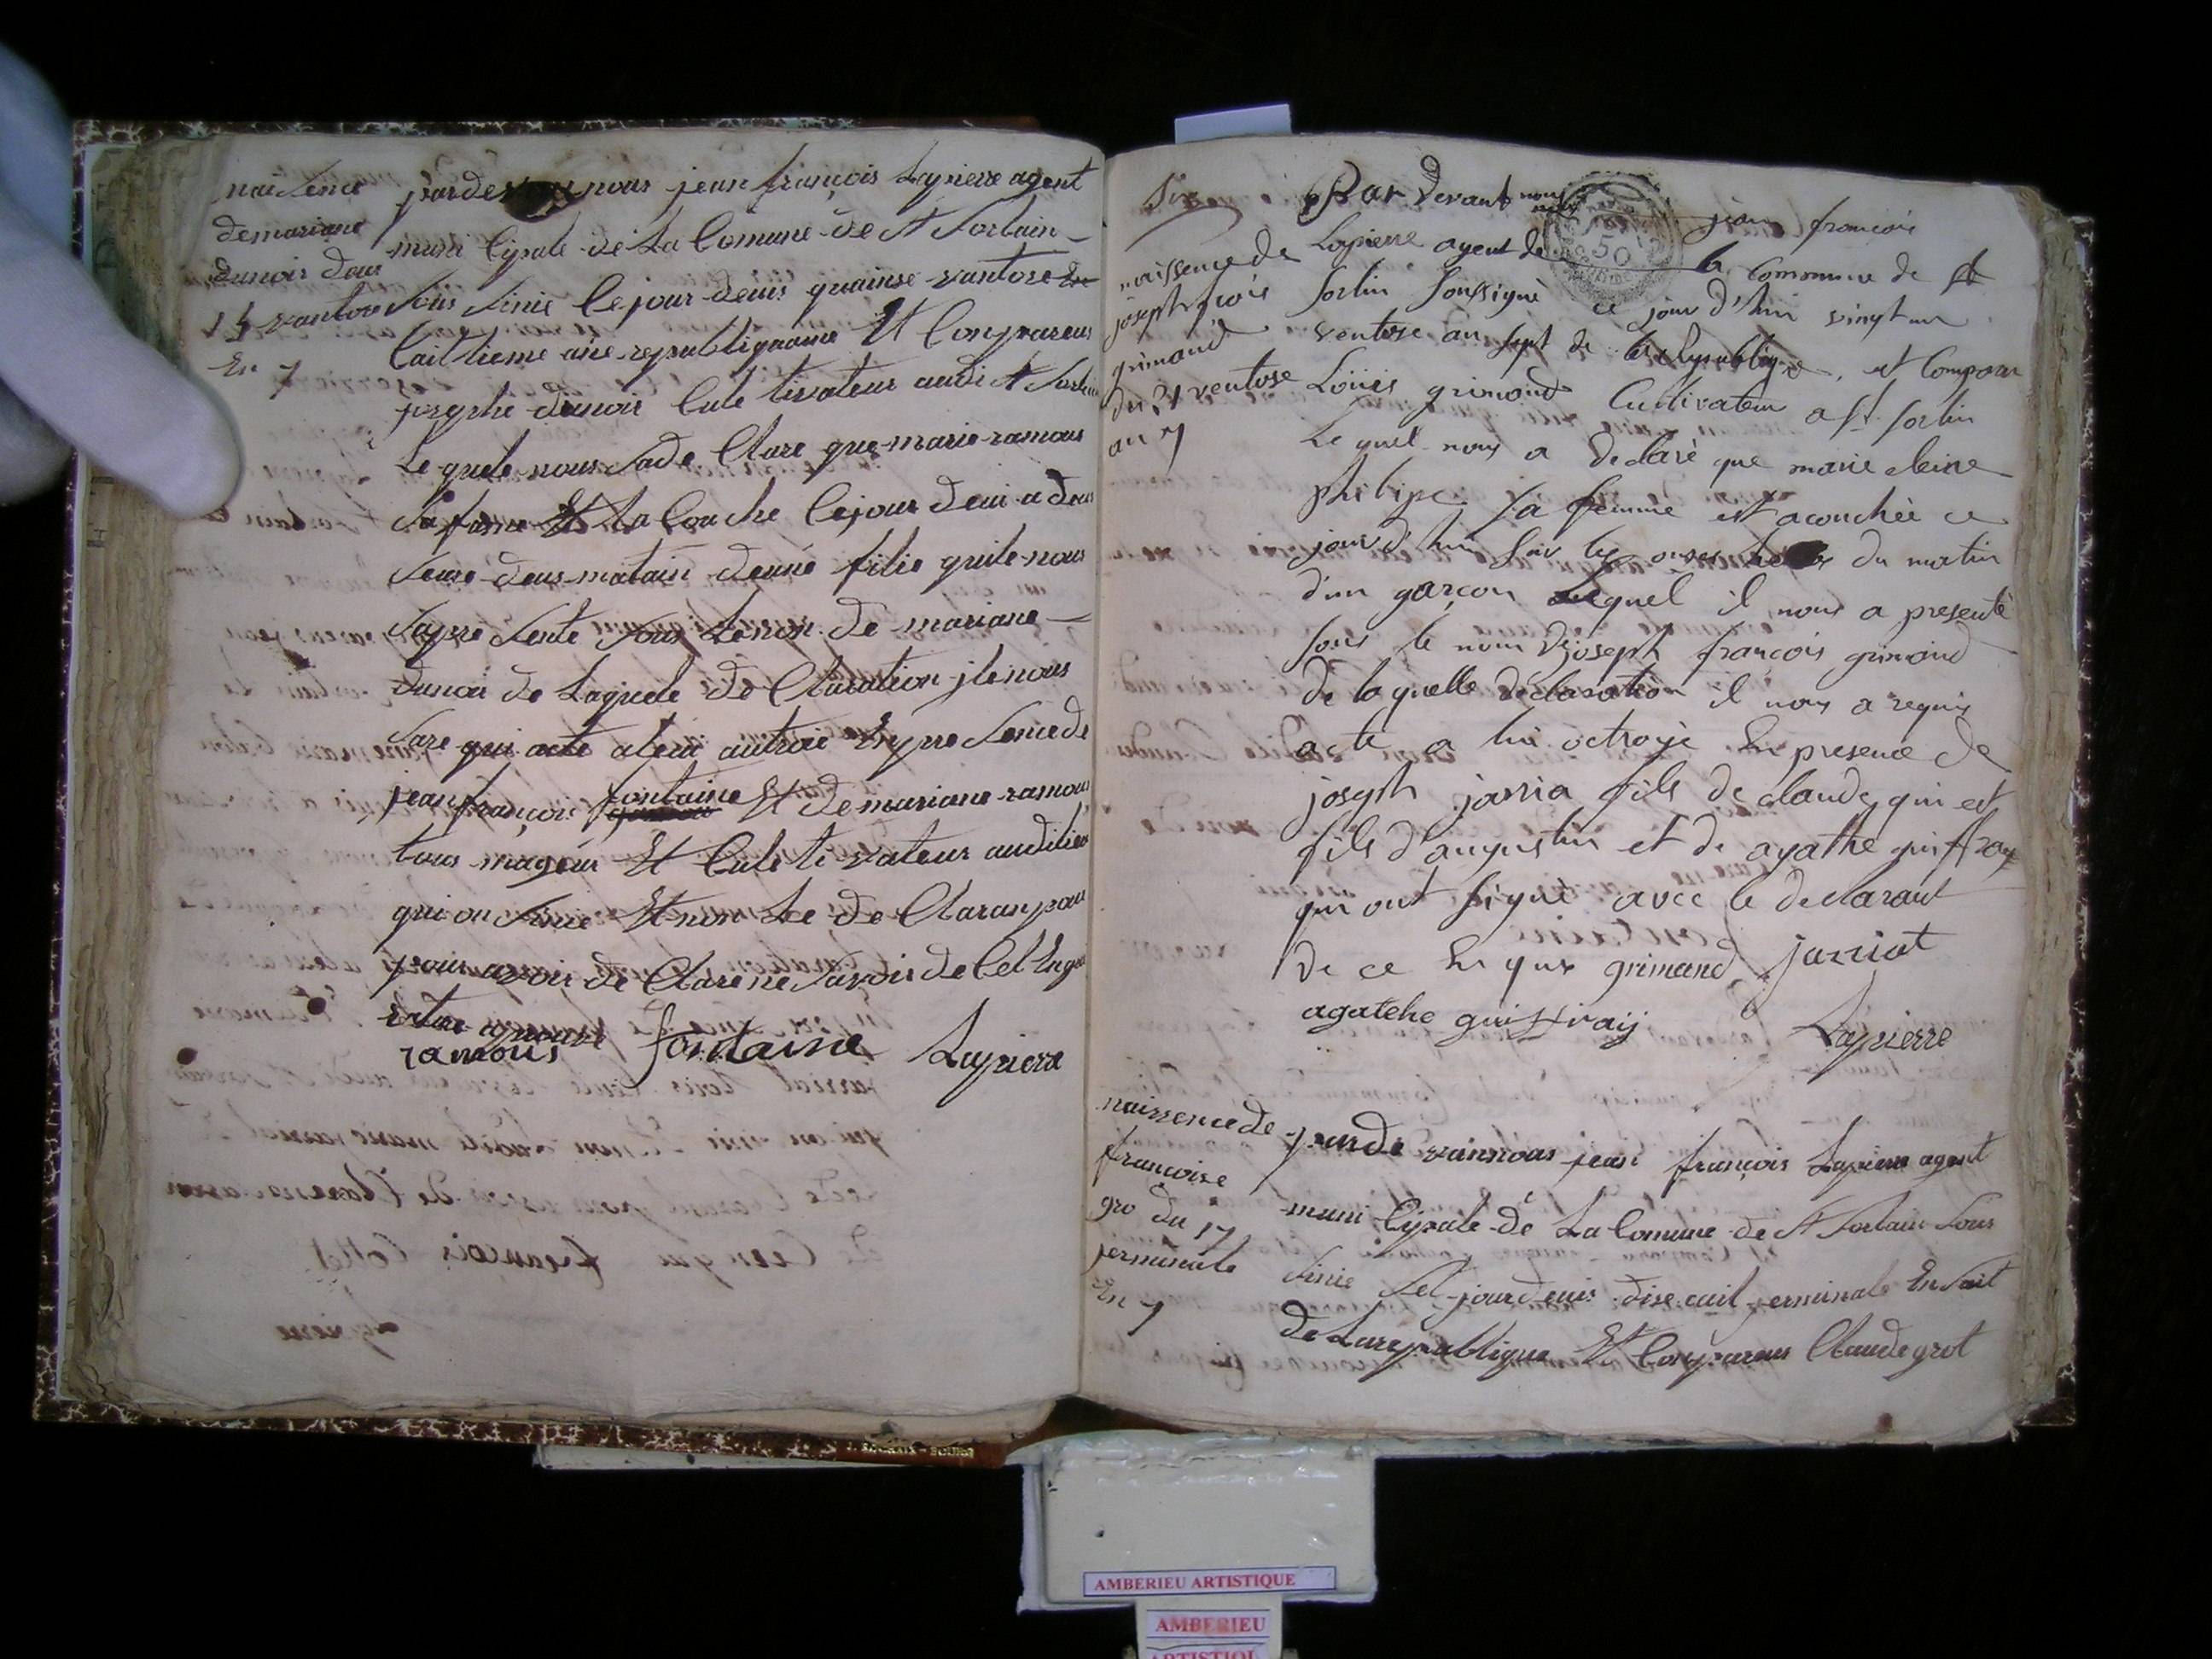 naisence
demariane
dunoir dous
15 vantose
En 7
pardevan nous jean françois Lapierre agent
muni cipale de La Comune de St Sorlain
sous sinie Cejour deuis quainse vantose En
Cait tieme ane republiquaine Et Conpareus
josephe dunoir Cule tivateur audi St Sorlain
Le quele nous sade Clare que marie ramous
sa fame Et ta Couche Cejour deui a dous
seure dous matain deune filie quile nous
sapre sente sous Lenon de mariane
dunoir de Laquele de Claration ile nous
sare qui acte aleui autroie Enpre sence de
jean françois fontaine Et de mariane ramous
tous mageur Et Cule ti vateur audilieu
qui on sinie Et non Le de Claran pour
pour avoir de Clare ne savoir de Cel Enqui
ramous fontaine Lapiera
Six
naissence de
joseph fcois
grimand
du 21 ventose
an 7
Par Devant nous jean francois
Lapierre agent de la Commune de St
sorlin soussigné ce jour d'hui vingt un
ventose an sept de la Republique, et Compara
Loüis grimand Cultivateur a St sorlin
Le quel nous a declaré que marie cleire
philipe sa femme est acouchée ce
jour d'hui sur les onses heures du matin
d'un garçon lequel il nous a presenté
sous le nom de joseph francois grimand
de laquelle déclaration il nous a requis
acte a lui octroyé En presence de
joseph jarria fils de claude, qui est
fils d'augustin et de agathe guiffray
qui ont signé avec le declarant
De ce Enquis grimand jarriat
agatehe guiffraij Lapierre
naissence de
francoise
gro du 17
jerminale
En 7
parde vannous jean françois Lapierre agent
muni Cipale de La Comune de St Sorlain sous
sinie sel jour deuis dise cuit jerminale En sait
de Larepublique Et Conpareus Claude grot
J. ROCHAIX - BOURG
AMBERIEU ARTISTIQUE
AMBERIEU
ARTISTIQU